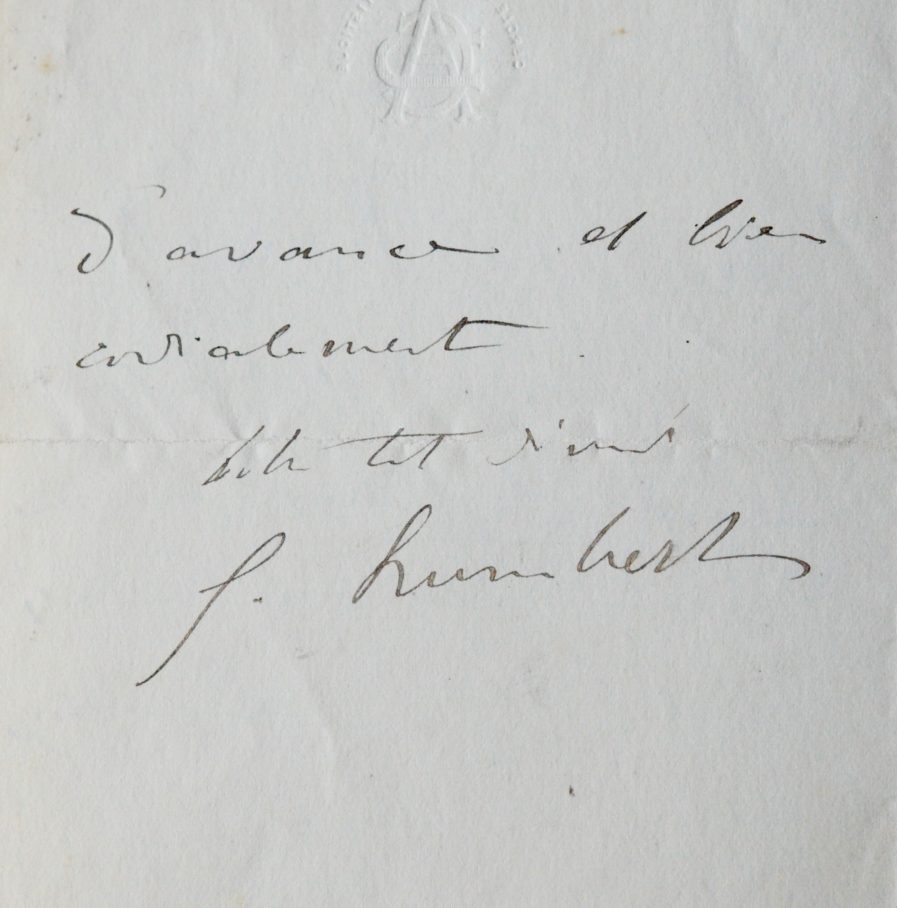 d'avance et bien
cordialement
tout dévoué
F. Humbert